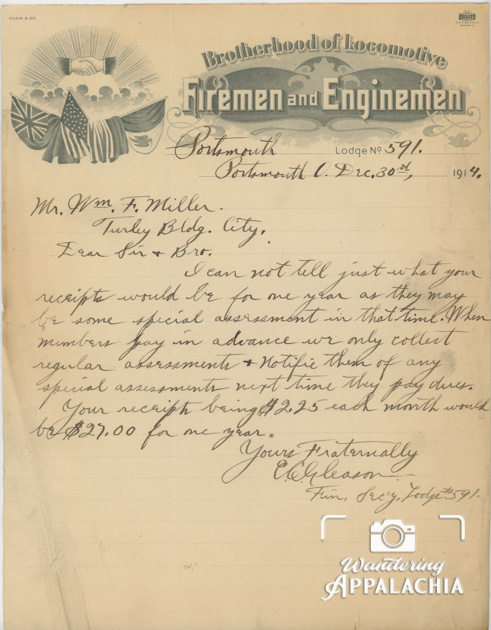 FORM B 50.
Brotherhood of Locomotive
Firemen and Enginemen
Portsmouth Lodge No 591.
Portsmouth O. Dec. 30th, 1914.
Mr. Wm. F. Miller.
Turley Bldg. City.
Dear Sir & Bro.
I can not tell just what your
receipts would be for one year as they may
be some special assessment in that time. When
members pay in advance we only collect
regular assessments & Notifie them of any
special assessments next time they pay dues.
Your receipts being $2.25 each month would
be $27.00 for one year.
Yours Fraternally
E.C. Gleason
Fin. Sec'y. Lodge #591.
Wandering
APPALACHIA